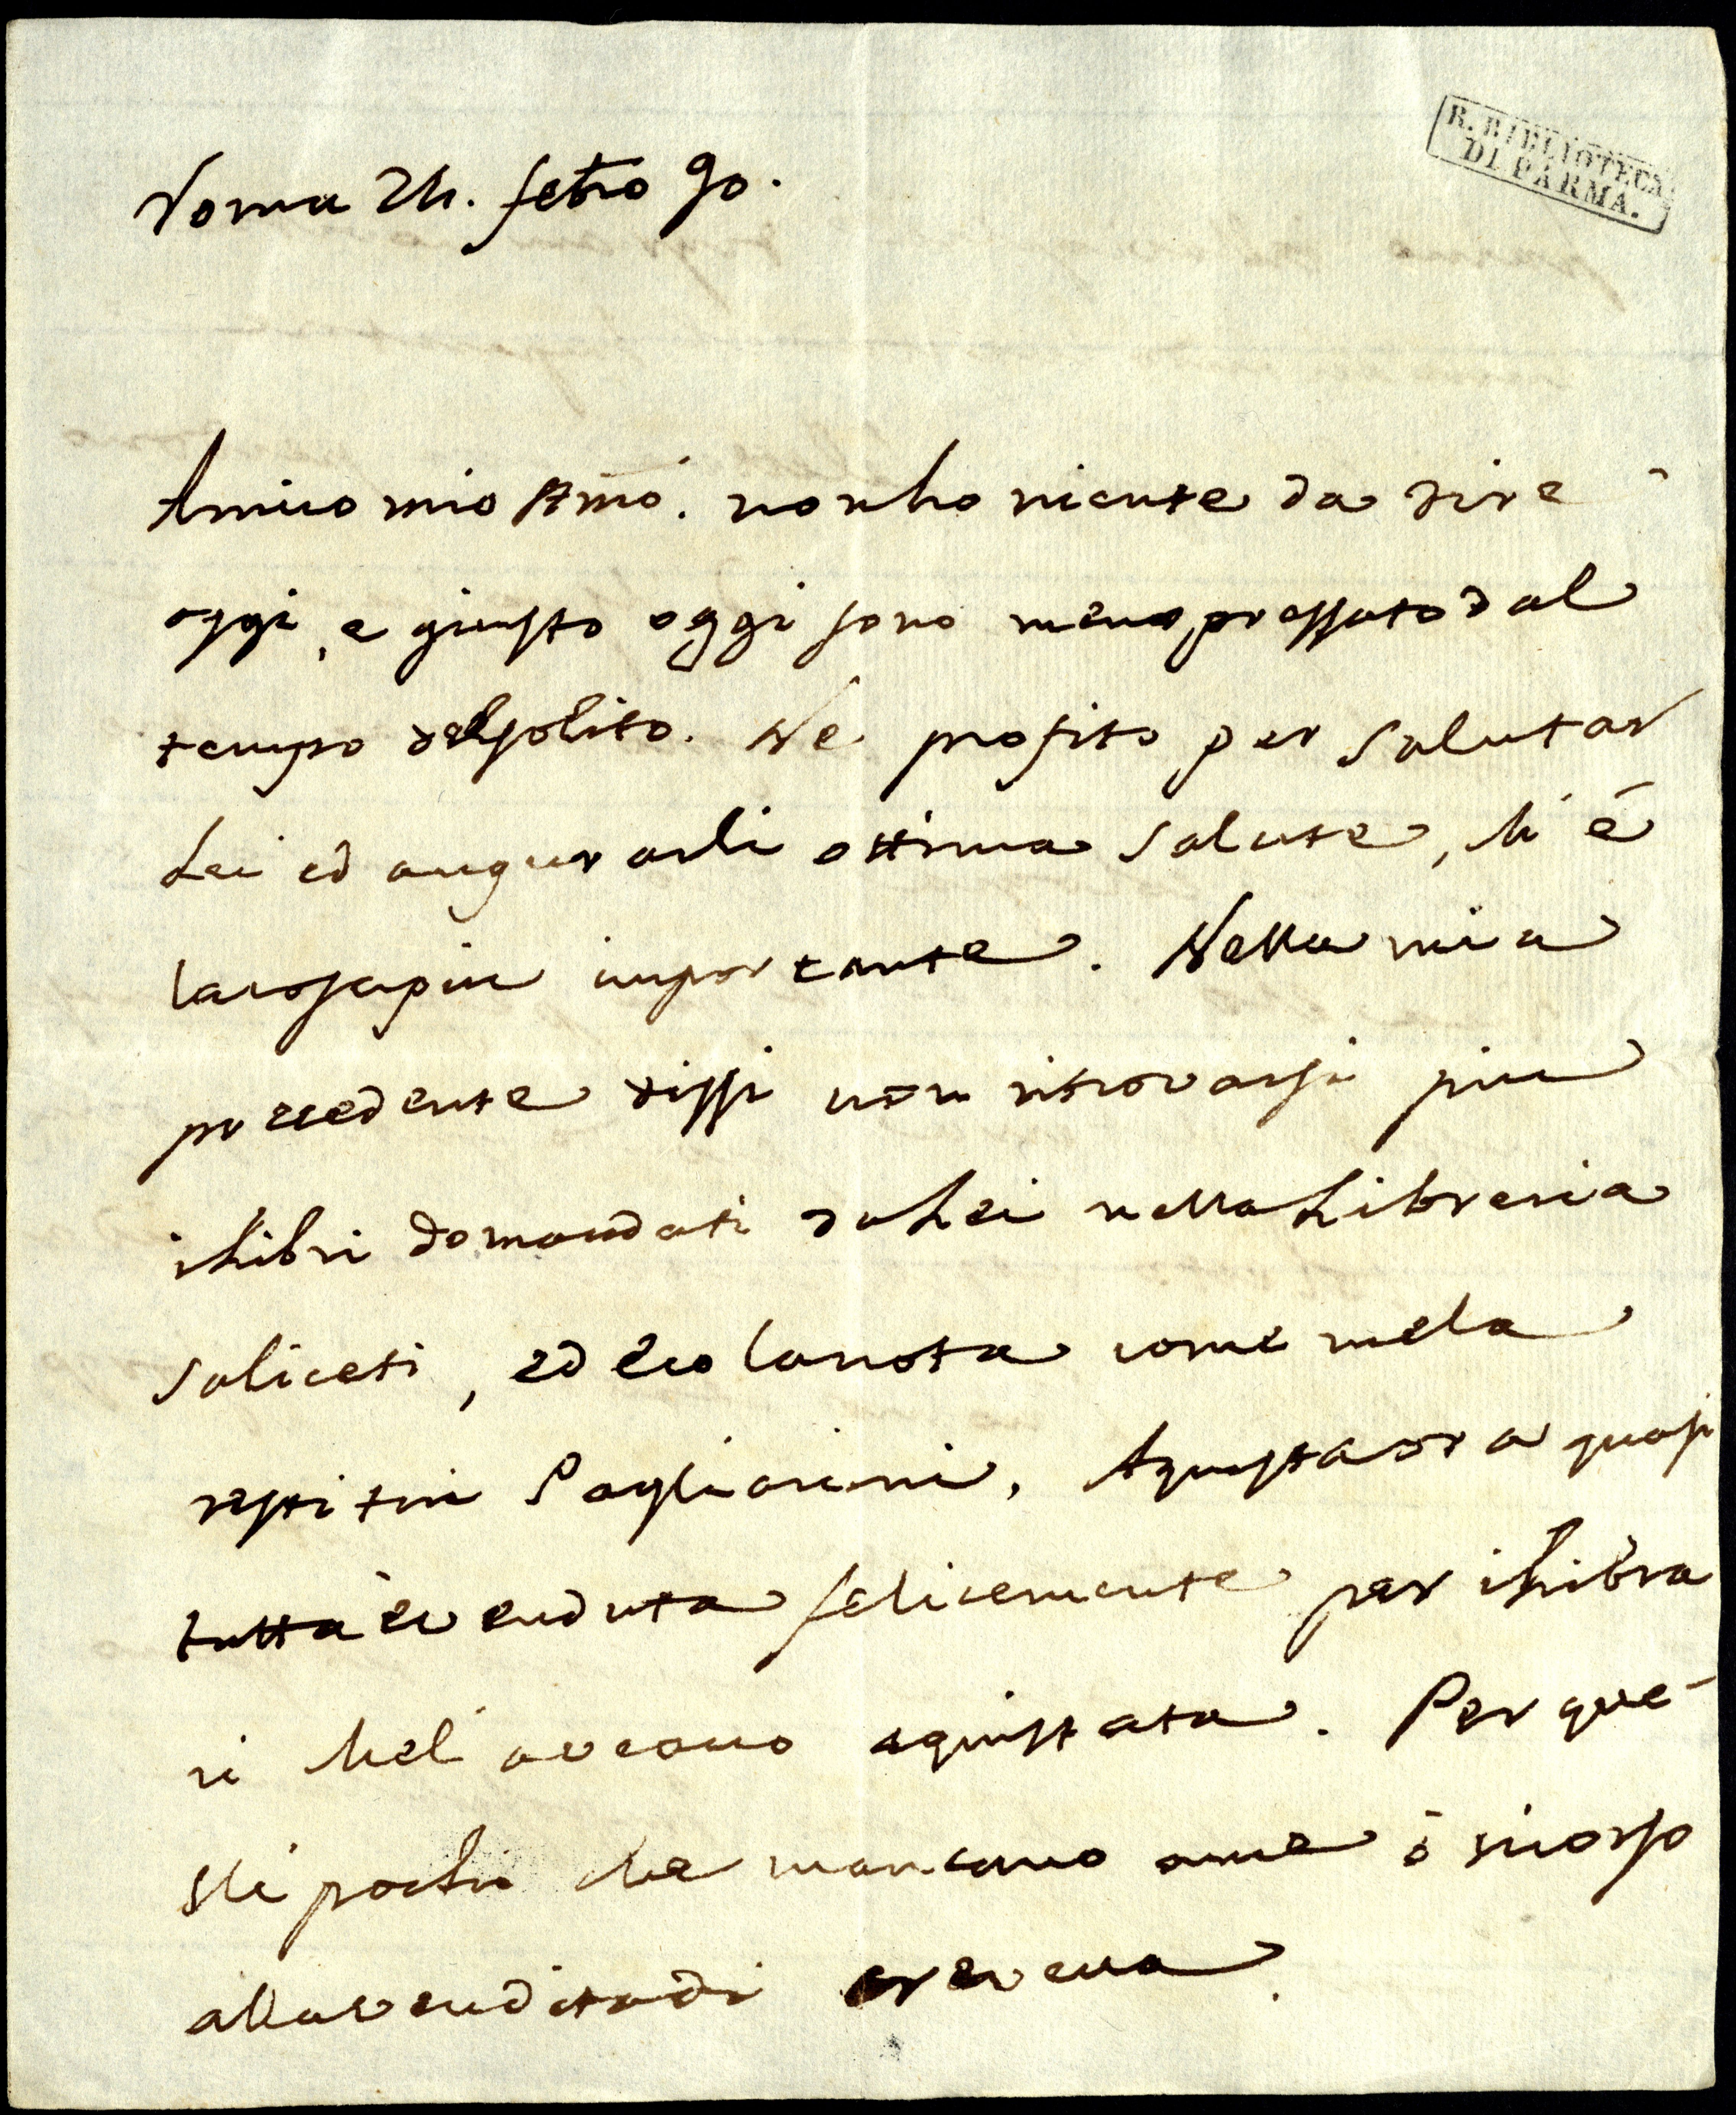 R. BIBLIOTECA
DI PARMA.
Roma 24. febro 90.
Amico mio Amo. non ho niente da dire
oggi, e giusto oggi sono meno pressato dal
tempo del solito. Ne profito per salutar
Lei ed augurarli ottima salute, ch'é
la cosa piu importante. Nella mia
precedente dissi non ritrovarsi piu
i Libri domandati da Lei nella Libreria
Saliceti, ed ecco la nota come me la
restituì Pagliarini. A quest'ora quasi
tutta è venduta felicemente per i Libra
ri che l'aveano aquistata. Per que-
sti pochi che mancano ame ò ricorso
alla vendita di